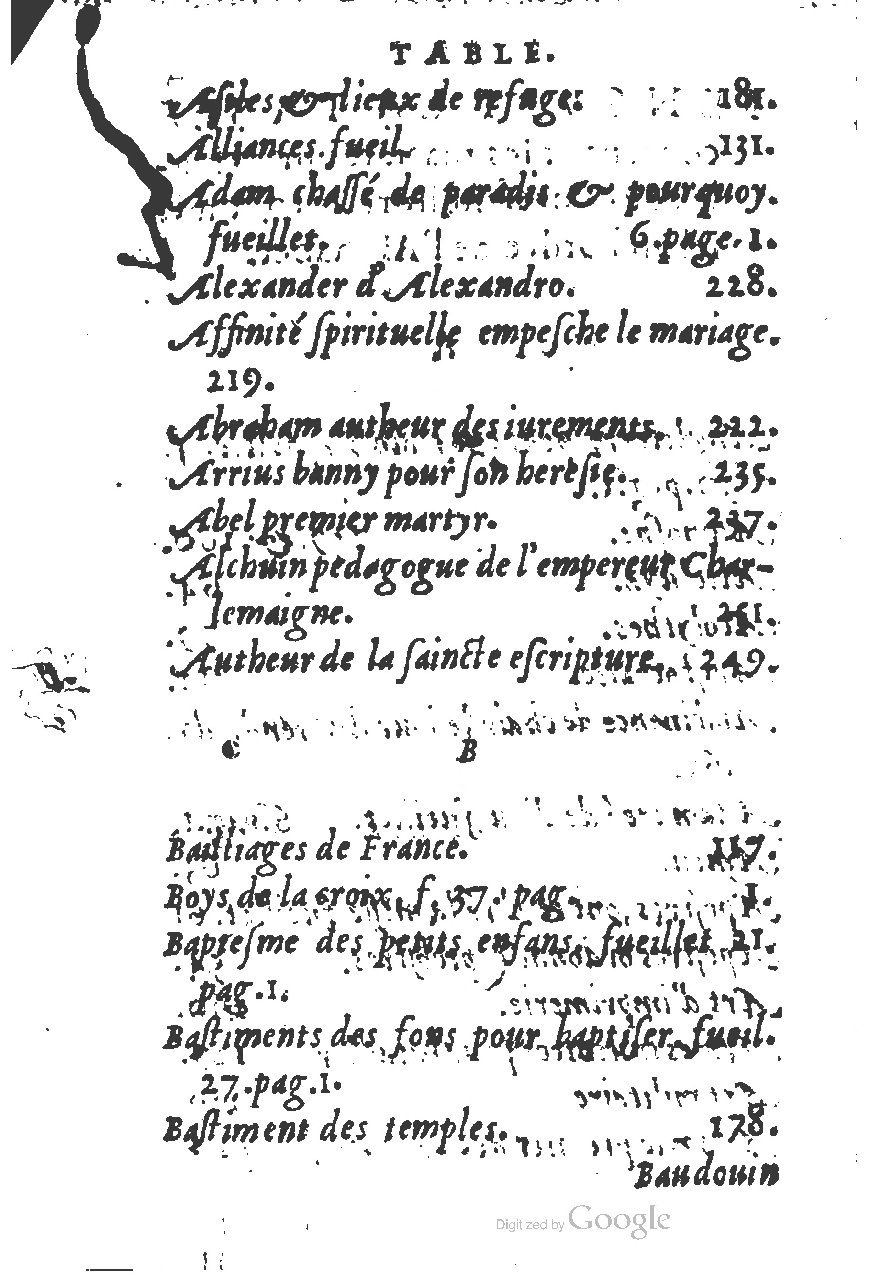 TABLE.
Asiles & lieux de refuge: 181.
Alliances. fueil. 131.
Adam chassé de paradis & pourquoy.
fueillet. 6.page.1.
Alexander d'Alexandro. 228.
Affinité ſpirituelle empeſche le mariage.
219.
Abraham autheur des iurements. 222.
Arrius banny pour ſon hereſie. 235.
Abel premier martyr. 237.
Alchuin pedagogue de l'empereur Char-
lemaigne. 251.
Autheur de la ſaincte eſcripture. 249.
B
Bailliages de France. 117.
Boys de la croix. f. 37. pag. 1.
Bapteſme des petits enfans. fueillet 21.
pag.1.
Baſtiments des fons pour baptiſer. fueil.
27.pag.1.
Baſtiment des temples. 178.
Baudouin
Digitized by Google